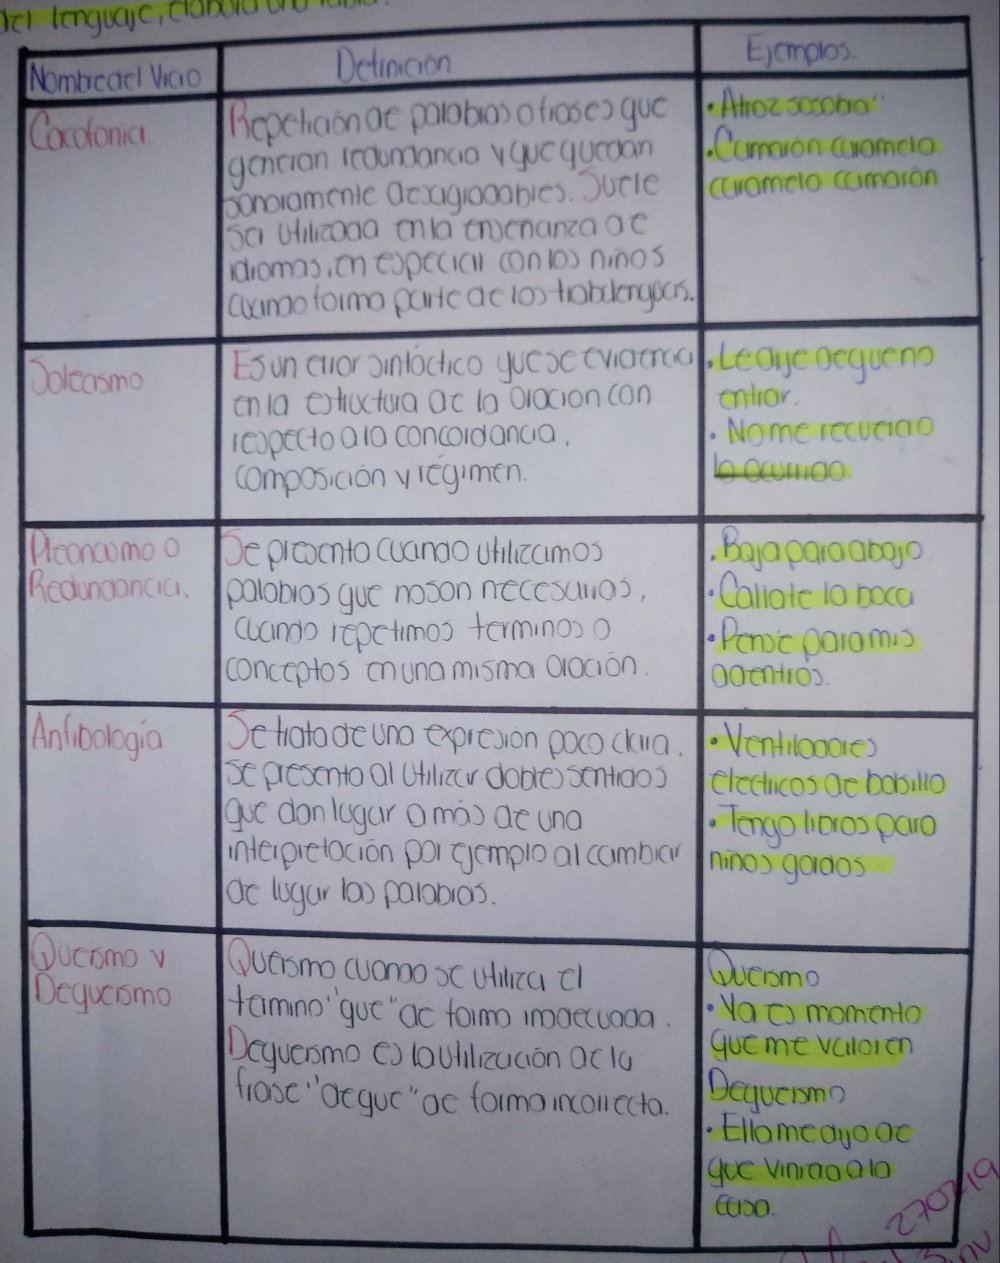 del lenguaje, elabora una tabla.
Nombre del Vicio
Definición
Ejemplos.
Cacofonia
Repetición de palabras o frases que
generan redundancia y que quedan
sonoramente desagradables. Suele
ser utilizada en la enseñanza de
idiomas, en especial con los niños
cuando forma parte de los trabalenguas.
• Atroz zozobra"
• Camarón caramelo
caramelo camarón
Solecismo
Es un error sintáctico que se evidencia
en la estructura de la oracion con
respecto a la concordancia,
composición y régimen.
• Le dije de que no
entrar.
• No me recuerdo
lo ocurrido
Pleonasmo o
Redundancia.
Se presenta cuando utilizamos
palabras que no son necesarias,
cuando repetimos terminos o
conceptos en una misma oración.
• Baja para abajo
• Callate la boca
• Pensé para mis
adentros.
Anfibología
Se trata de una expresión poco clara.
se presenta al utilizar dobles sentidos
que dan lugar a más de una
interpretación por ejemplo al cambiar
de lugar las palabras.
• Ventiladores
electricos de bolsillo
• Tengo libros para
niños gordos
Queismo y
Dequeismo
Queismo cuando se utiliza el
termino "que" de forma inadecuada.
Dequeismo es la utilización de la
frase "de que" de forma incorrecta.
Queismo
• Ya es momento
que me valoren
Dequeismo
• Ella me dijo de
que vinirao a la
casa.
270219